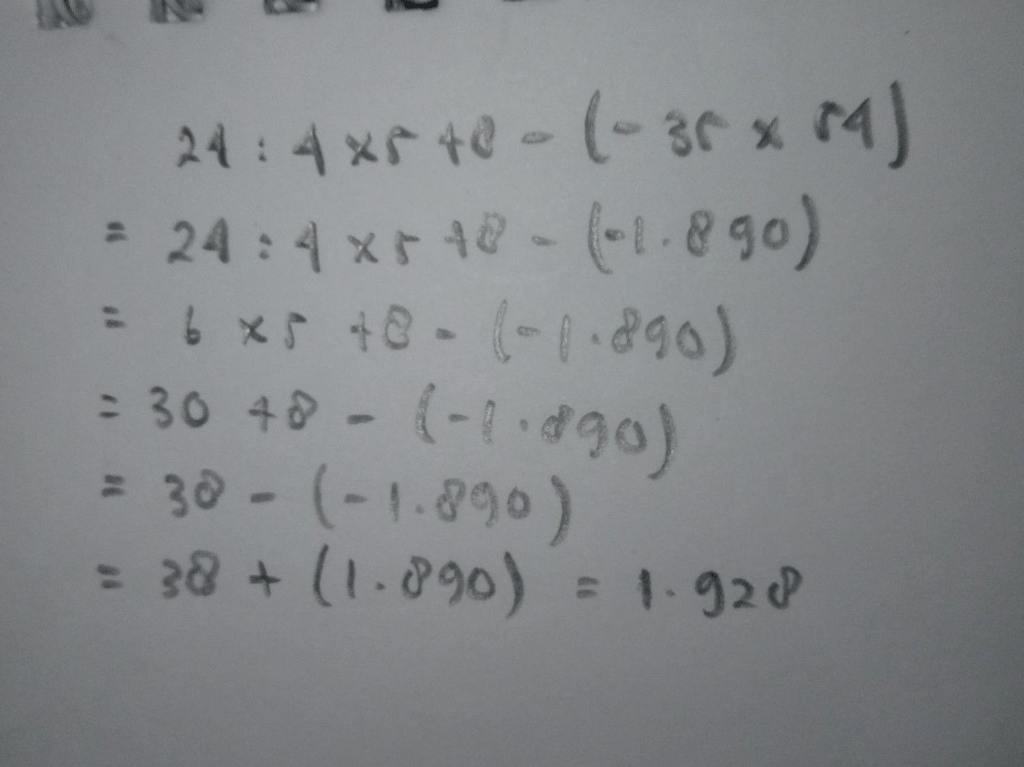 24 : 4 x 5 + 8 - (- 35 x 54)
= 24 : 4 x 5 + 8 - (-1.890)
= 6 x 5 + 8 - (-1.890)
= 30 + 8 - (-1.890)
= 38 - (-1.890)
= 38 + (1.890) = 1.928